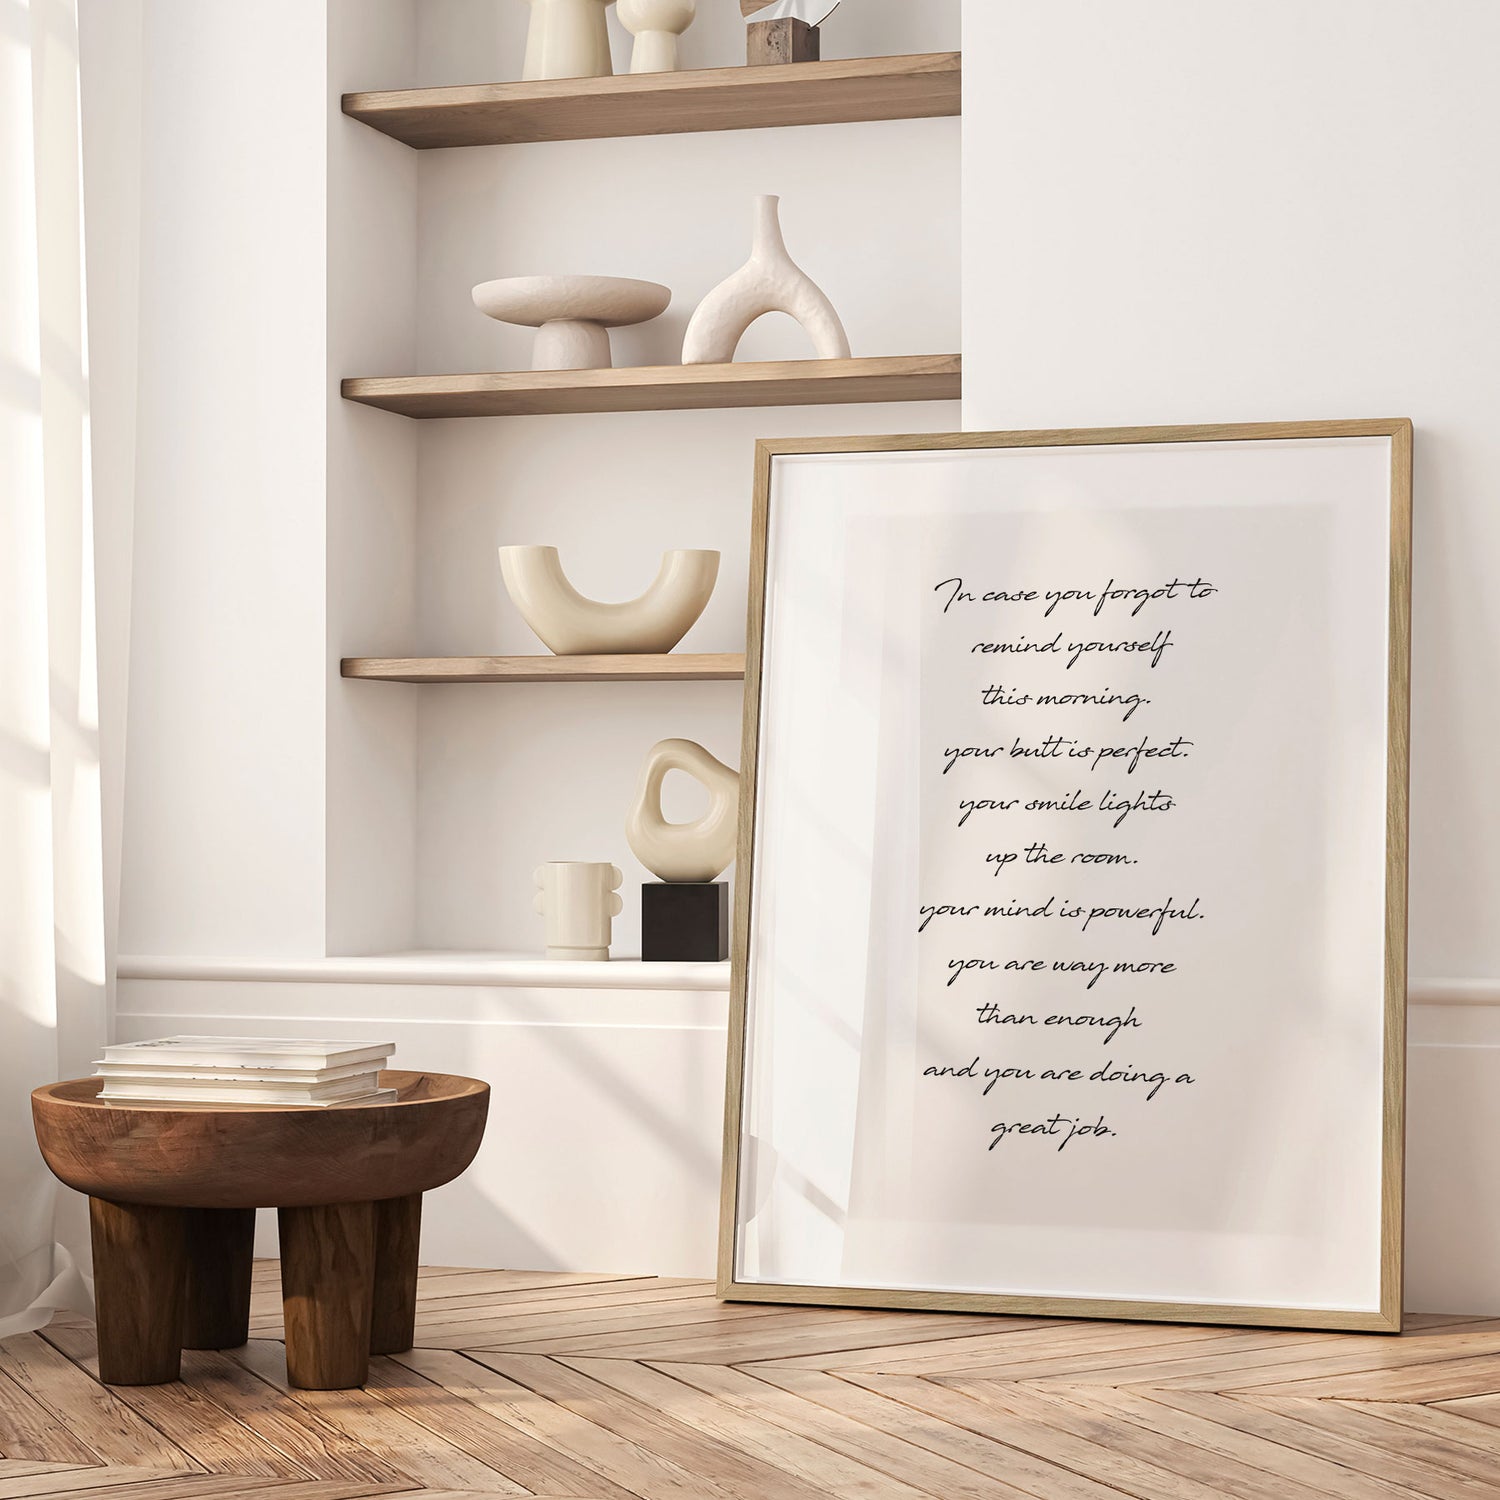 In case you forgot to
remind yourself
this morning.
your butt is perfect.
your smile lights
up the room.
your mind is powerful.
you are way more
than enough
and you are doing a
great job.